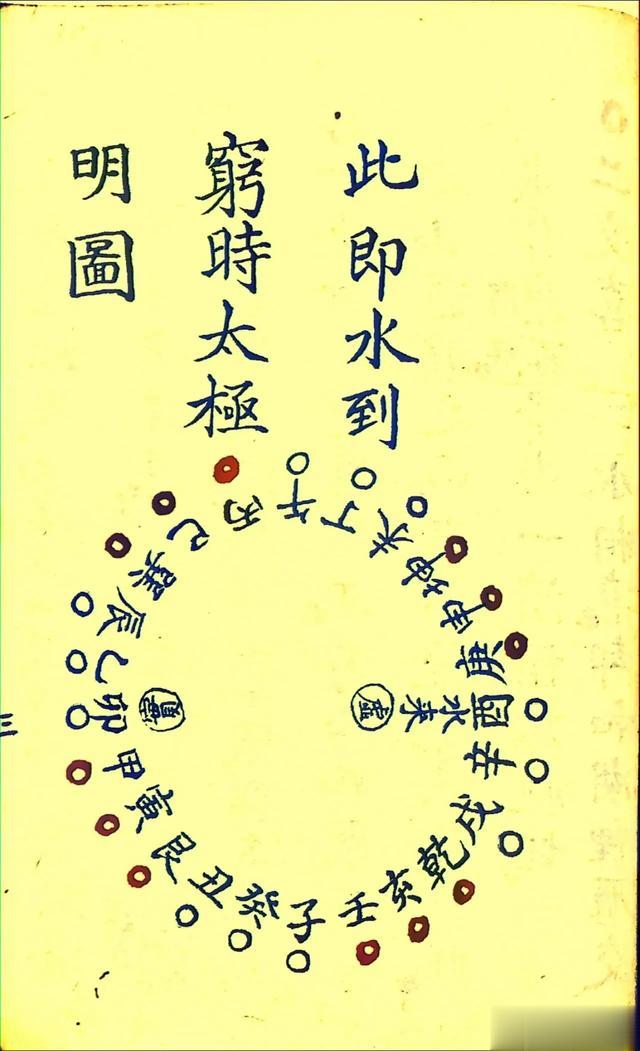 此即水到
窮時太極
明圖
午丁未坤申庚酉辛戌乾亥壬子癸丑艮寅甲卯乙辰巽巳丙
水
三